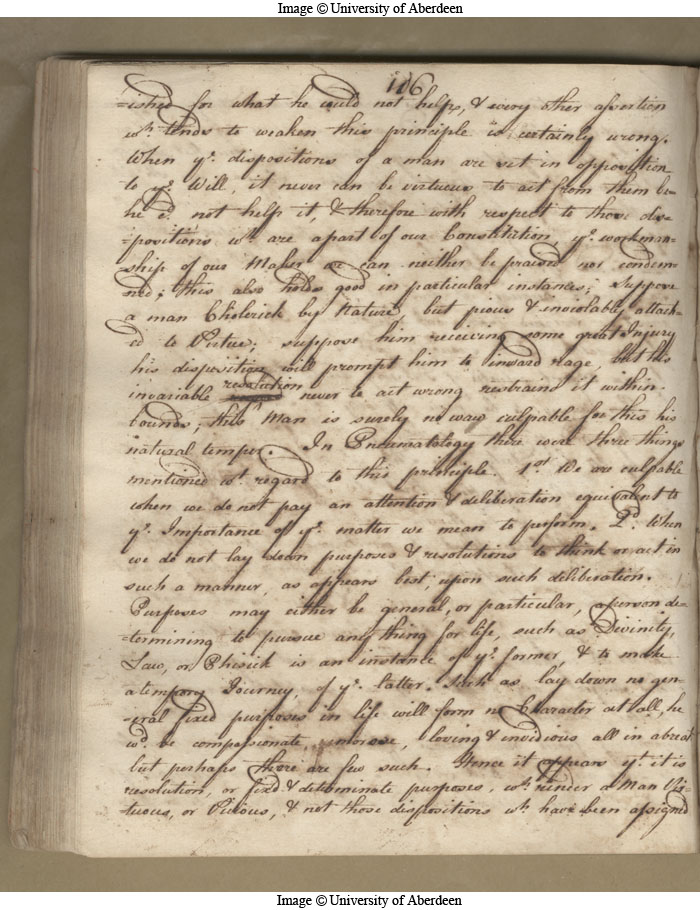 Image © University of Aberdeen
106
=ished for what he could not help, & every other assertion
wh. tends to weaken this principle is certainly wrong.
When ye. dispositions of a man are set in opposition
to ye. Will, it never can be virtuous to act from them be=
he cd. not help it, & therefore with respect to those dis=
=positions wh. are apart of our Constitution, ye. workman=
=ship of our Maker we can neither be praised nor condem=
ned; this also holds good in particular instances; Suppose
a man Cholerick by Nature, but pious & inviolably attach=
ed to Virtue; suppose him receiving some great Injury
his disposition will prompt him to inward rage, but his
invariable resolution never to act wrong restrains it within
bounds; this Man is surely no way culpable for this his
natural temper. In Pneumatology there were three things
mentioned wt. regard to this principle. 1st. We are culpable
when we do not pay an attention & deliberation equivalent to
ye. Importance of ye. matter we mean to perform. 2d. When
we do not lay down purposes & resolutions to think or act in
such a manner, as appears best, upon such deliberation.
Purposes may either be general, or particular, a person de=
=termining to pursue any thing for life, such as Divinity,
Law, or Phisick is an instance of ye. former, & to make
a tempory Journey, of ye. latter. Such as lay down no gen=
=eral fixed purposes in life will form no Character at all, he
wd. be compassionate, morose, loving & invidious all in a breat
but perhaps there are few such. Hence it appears yt. it is
resolution, or fixd & determinate purposes, wh. render a Man Vir=
tuous, or Vicious, & not those dispositions wh. have been assigned
Image © University of Aberdeen